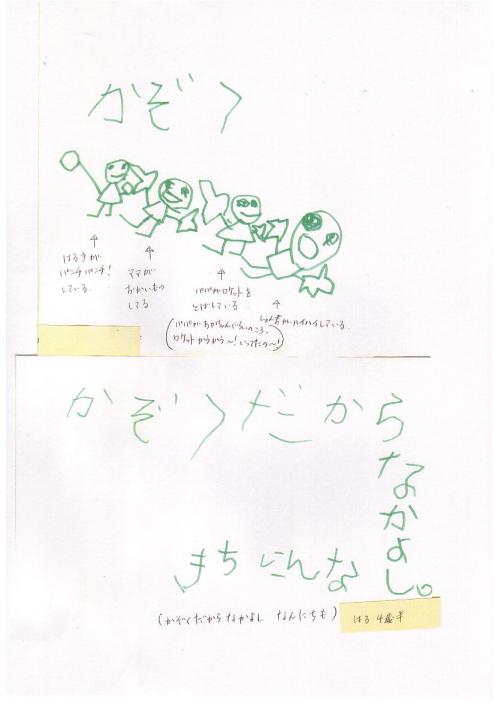 かぞく
はるきが
パンチパンチ!
している。
ママが
おかいもの
してる
パパがロケットを
とばしている
しゅん君がハイハイしている。
(パパがあかちゃんぐらいのころ、
ロケットかうかう〜!いってたの〜!)
かぞくだから
なかよし。
なんにちも
(かぞくだからなかよし なんにちも)
はる 4歳半